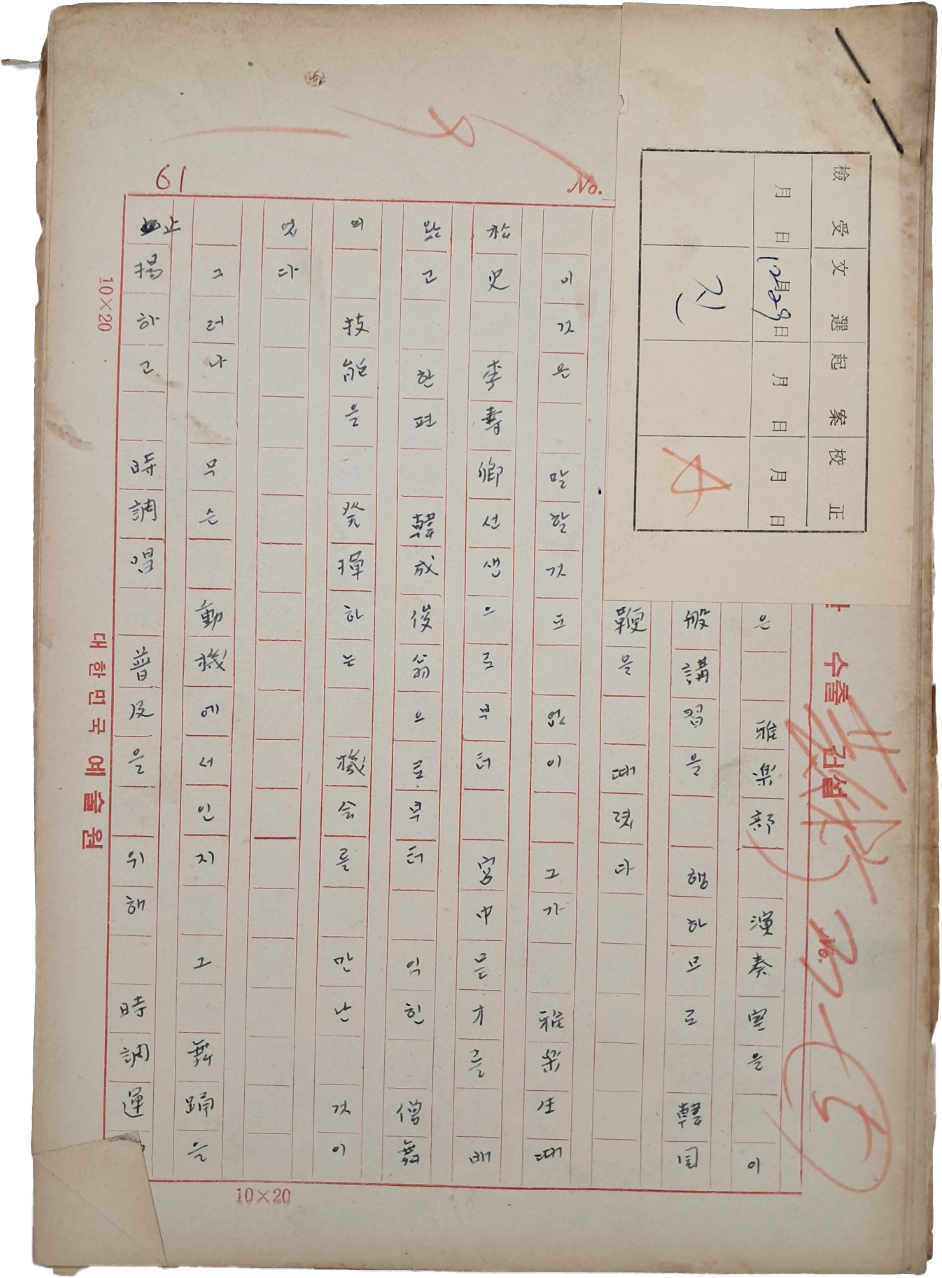 檢受 文選 起案 校正
月 日 12月29日 月 日 月 日
진
No.
수출 건설
은 雅楽部 演奏室을 이
般講習을 행하므로 韓国
鞭을 때렸다
이것은 말할것도 없이 그가 雅楽生때
史 李寿卿선생으로부터 宮中믄才를 배
왔고 한편 韓成俊翁으로부터 익힌 僧舞
의 技能을 発揮하는 機会를 만난 것이
었다
그러나 무슨 動機에서인지 그 舞踊을
止揚하고 時調唱 普及을 위해 時調運
61
10×20
대한민국 예술원
10×20